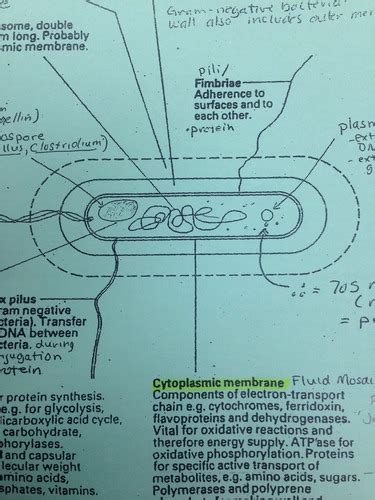 Gram-negative bacterial
wall also includes outer
some, double
m long. Probably
mic membrane.
pili/
Fimbriae
Adherence to
surfaces and to
each other.
• protein
ospore
Clostridium)
70S
x pilus
ram negative
cteria). Transfer
DNA between
cteria. during
njugation
rotein
Cytoplasmic membrane Fluid Mosai
Components of electron-transport
chain e.g. cytochromes, ferridoxin,
flavoproteins and dehydrogenases.
Vital for oxidative reactions and
therefore energy supply. ATP'ase for
oxidative phosphorylation. Proteins
for specific active transport of
metabolites, e.g. amino acids, sugars.
Polymerases and polyprene
r protein synthesis.
e.g. for glycolysis,
licarboxylic acid cycle,
carbohydrate,
phorylases.
and capsular
lecular weight
amino acids,
sphates, vitamins.